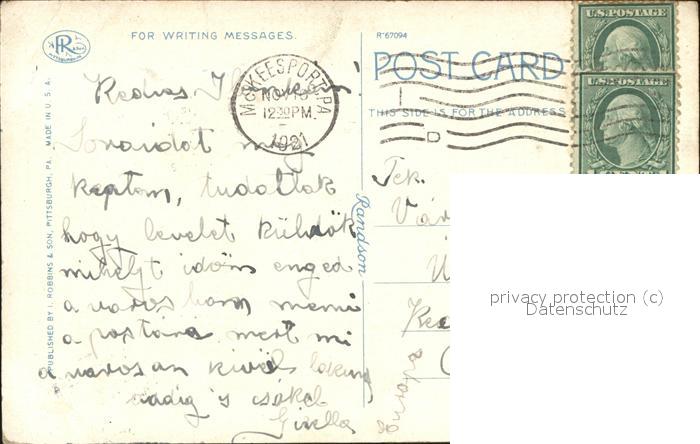 FOR WRITING MESSAGES.
R-67094
POST CARD
THIS SIDE IS FOR THE ADDRESS
U.S. POSTAGE
U.S. POSTAGE
McKEESPORT PA
NOV
12 30 PM.
1921
PUBLISHED BY I. ROBBINS & SON, PITTSBURGH, PA. MADE IN U.S.A.
Randson
Kedves
Soraidat meg
kaptam, tudatlak
hogy levelet küldök
mihelyt időm enged
a városban menni
a postára mert mi
a városan kivül lakunk
addig is csókol
Gizella
Tek.
privacy protection (c)
Datenschutz